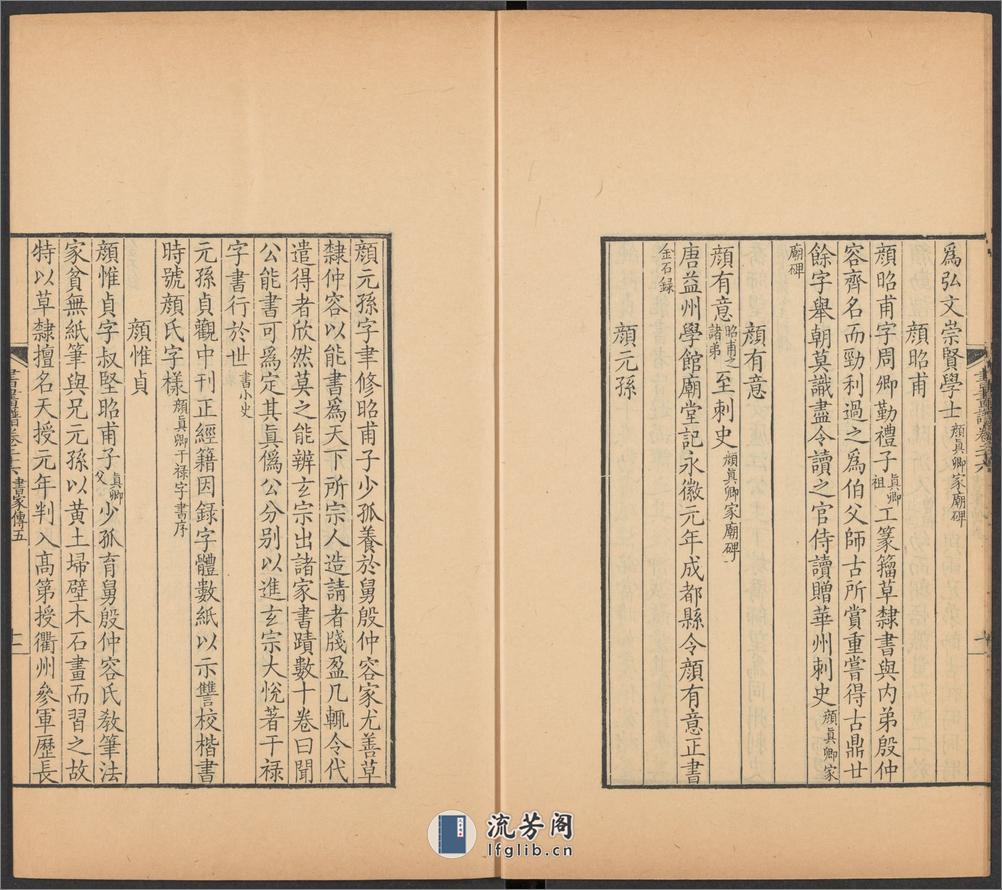 爲弘文崇賢學士顔眞卿家廟碑
顔昭甫
顔昭甫字周卿勤禮子眞卿祖工篆籀草隸書與内弟殷仲
容齊名而勁利過之爲伯父師古所賞重嘗得古鼎廿
餘字舉朝莫識盡令讀之官侍讀贈華州刺史顔眞卿家
廟碑
顔有意
顔有意昭甫之諸弟至刺史顔眞卿家廟碑
唐益州學館廟堂記永徽元年成都縣令顔有意正書
金石録
顔元孫
顔元孫字聿修昭甫子少孤養於舅殷仲容家尤善草
隸仲容以能書爲天下所宗人造請者牋盈几輒令代
遣得者欣然莫之能辨玄宗出諸家書蹟數十卷曰聞
公能書可爲定其眞僞公分别以進玄宗大悦著干禄
字書行於世書小史
元孫貞觀中刊正經籍因録字體數紙以示讐校楷書
時號顔氏字樣顔眞卿干禄字書序
顔惟貞
顔惟貞字叔堅昭甫子眞卿父少孤育舅殷仲容氏敎筆法
家貧無紙筆與兄元孫以黄土埽壁木石畫而習之故
特以草隸擅名天授元年判入髙第授衢州參軍歷長
書畫譜卷二十六 書家傳五
十一
流芳阁
lfglib.cn